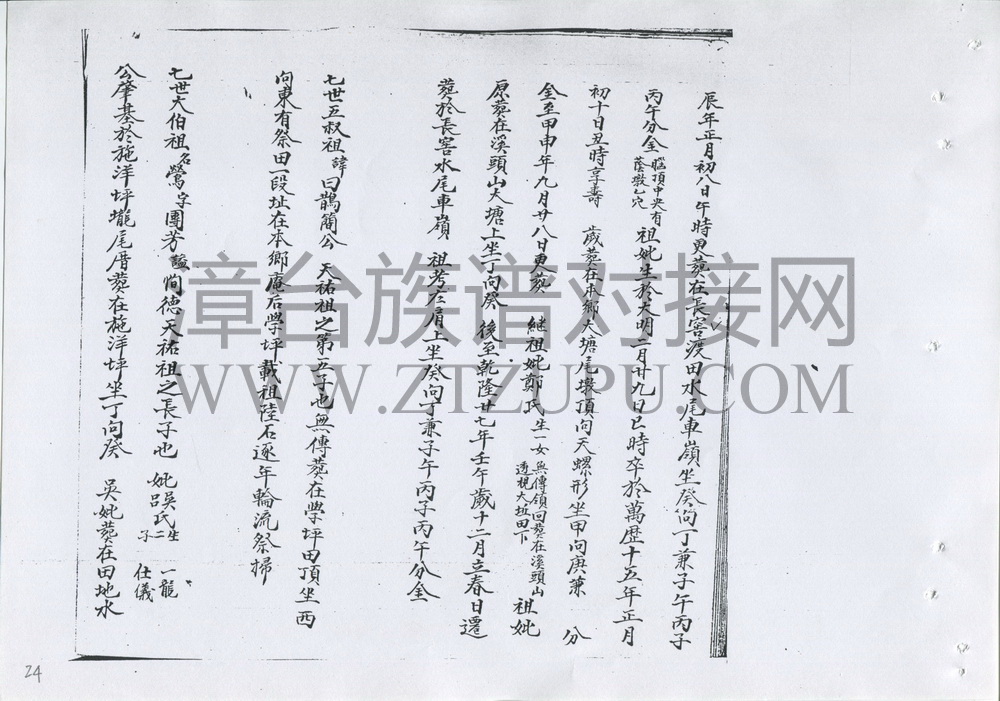 辰年正月初八日午時更葬在長窖渡田水尾車嶺坐癸向丁兼子午丙子
丙午分金 腦頂中央有 蔭墩乙穴 祖妣生於大明二月廿九日巳時卒於萬歷十五年正月
初十日丑時享壽 歲葬在本鄉大塘尾墩頂向天螺形坐甲向庚兼 分
金至甲申年九月廿八日更葬 継祖妣鄭氏 生一女無傳嶺回葬在溪頭山 透視大坵田下 祖妣
原葬在溪頭山大塘上坐丁向癸 後至乾隆廿七年壬午歲十二月立春日遷
葬於長窖水尾車嶺 祖考左肩上坐癸向丁兼子午丙子丙午分金
七世五叔祖諱曰鵲簡公 天祐祖之第五子也無傳葬在学坪田頂坐西
向東有祭田一段址在本鄉庵后学坪載祖陸石逐年輪流祭掃
七世大伯祖名鶯字團芳 恂德天祐祖之長子也 妣吳氏呂氏 生二子 一龍 仕儀
公肇基於施洋坪壠尾厝葬在施洋坪坐丁向癸 吳妣葬在田地水
章台族谱对接网
WWW.ZTZUPU.COM
24